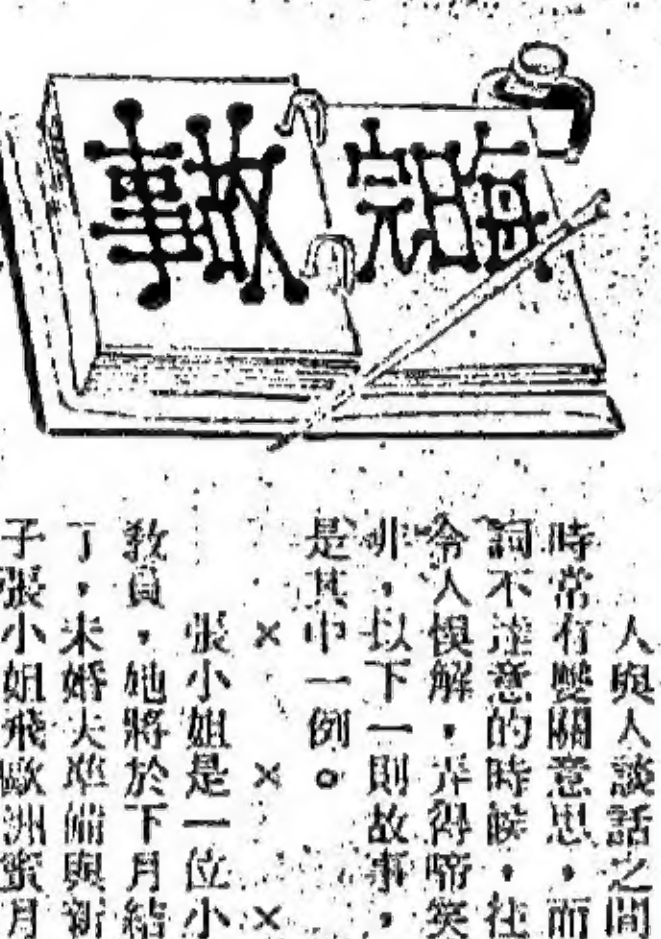 每日完故事
人與人談話之間
時常有雙關意思,而
詞不達意的時候,往
令人悞解,弄得啼笑
非,以下一則故事,
是其中一例。
× × ×
張小姐是一位小
教員,她將於下月結
了,未婚夫準備與新
子張小姐飛歐洲蜜月